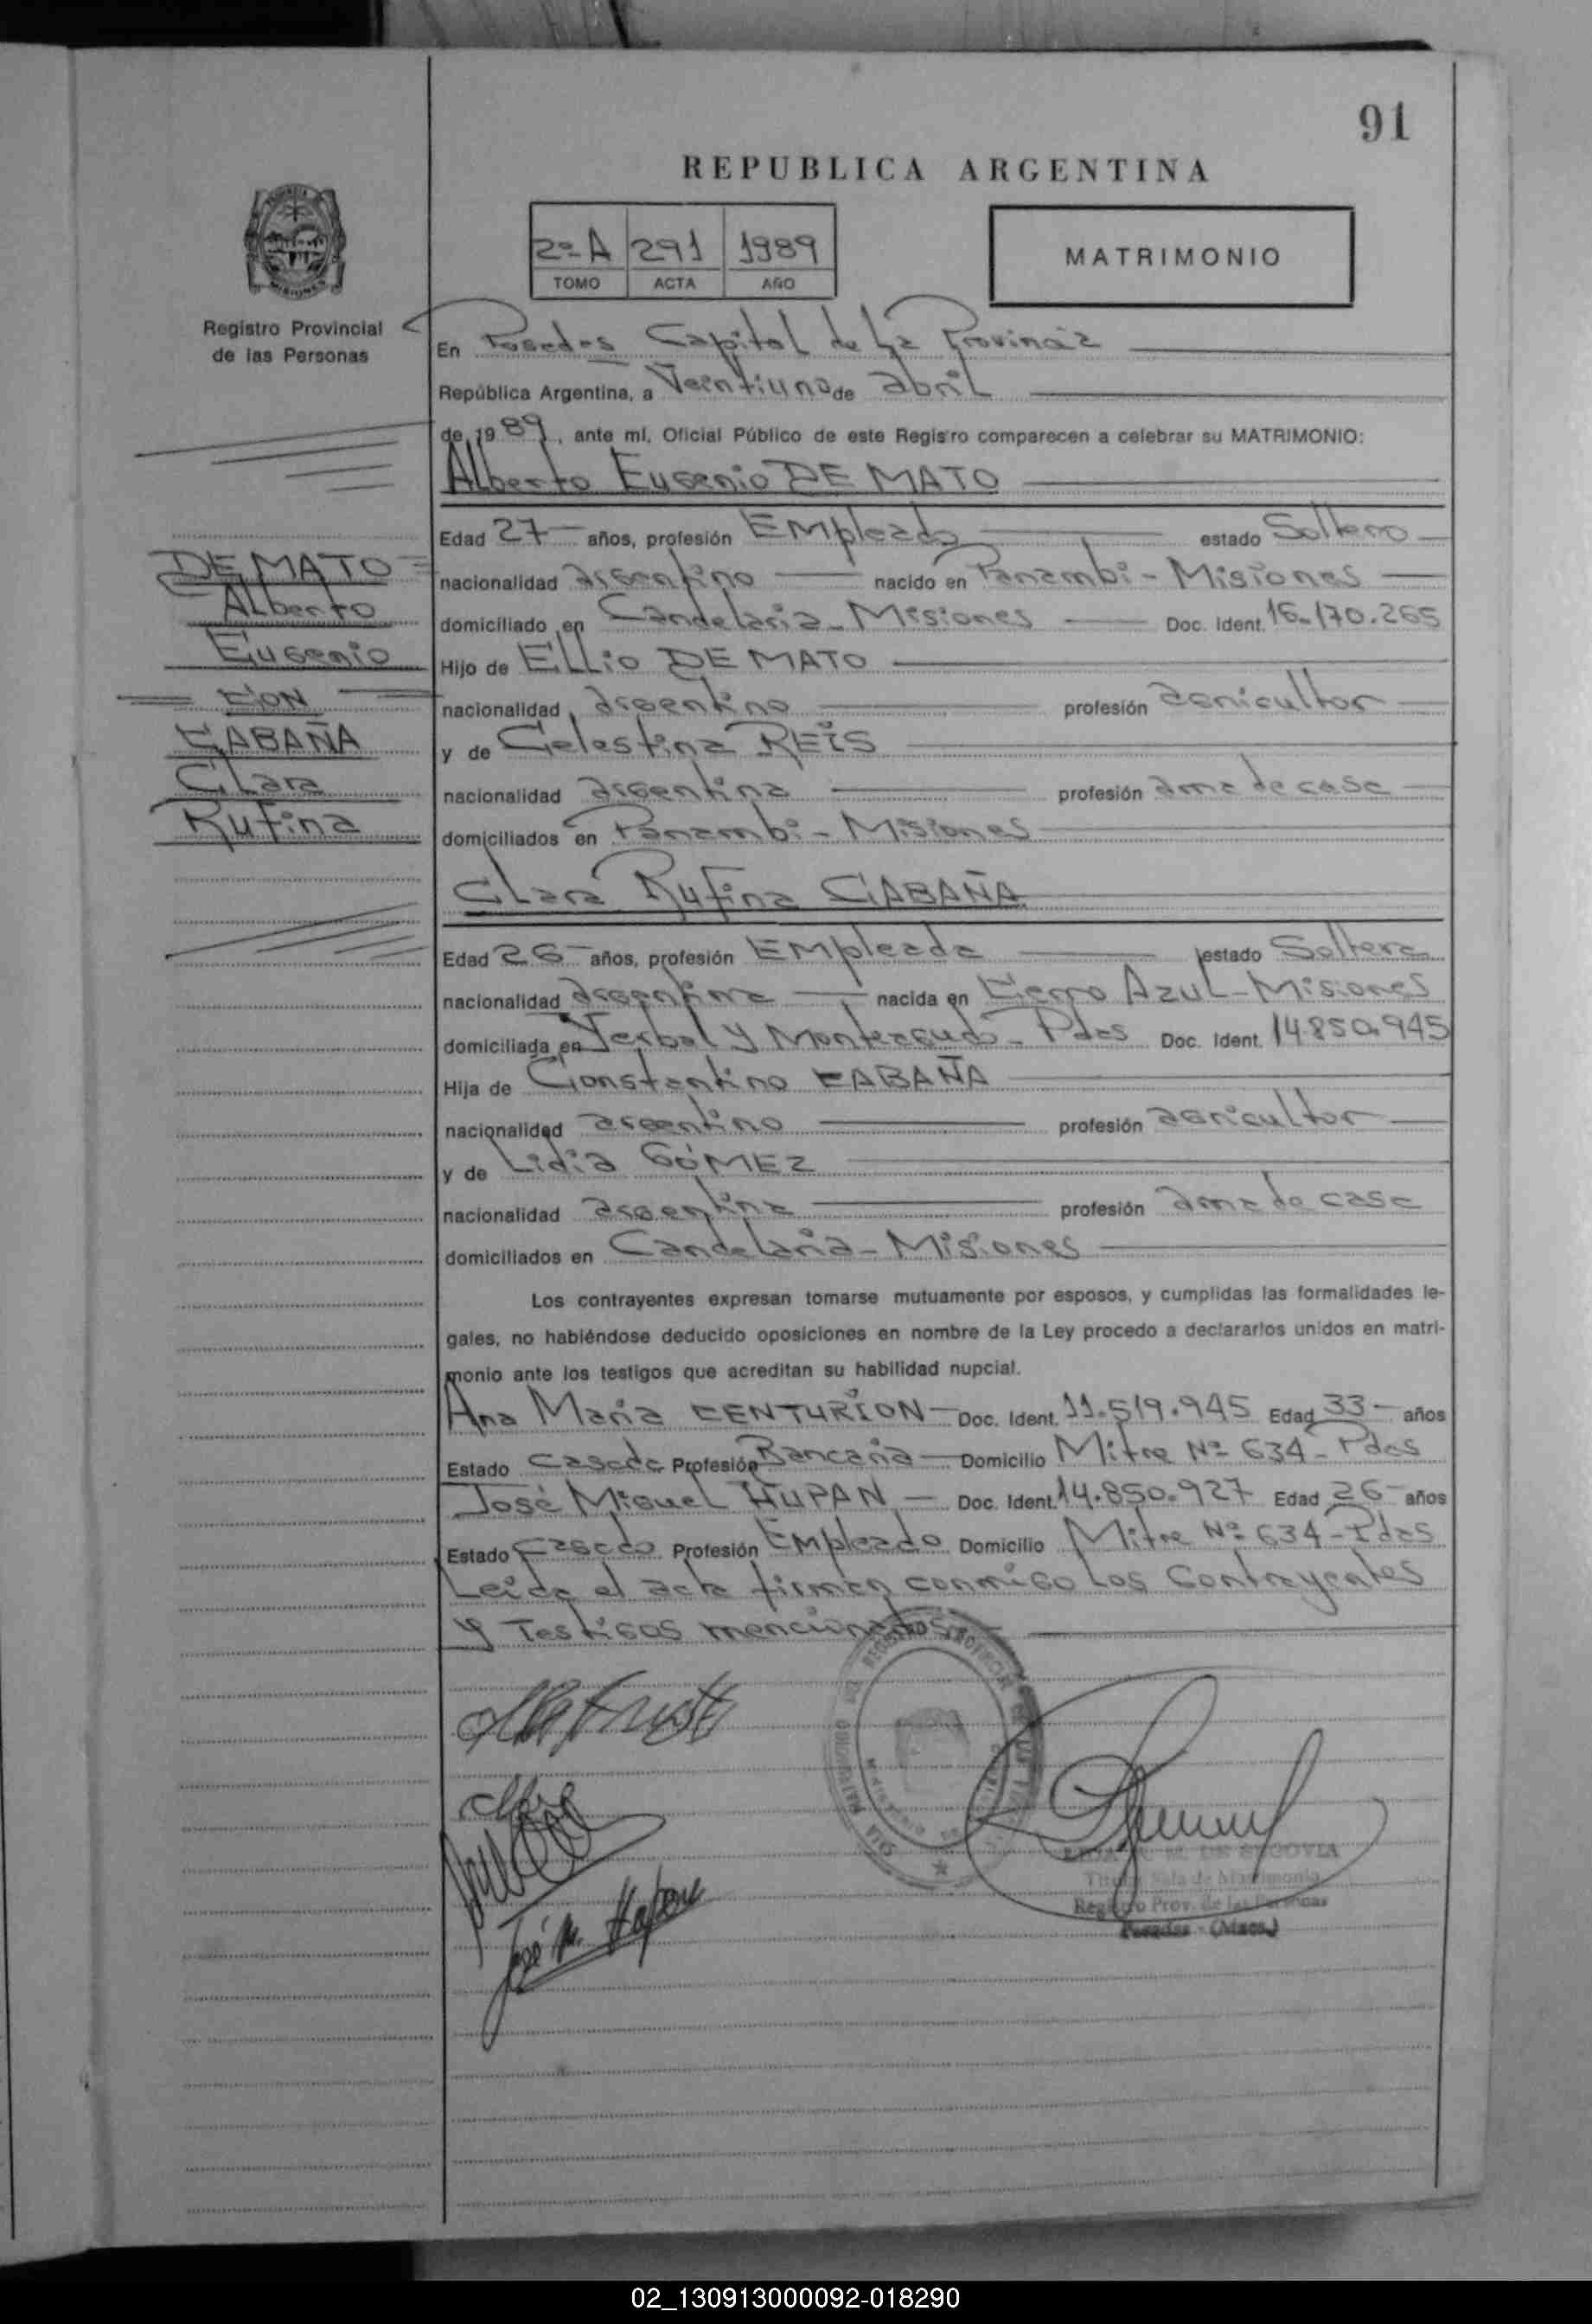 91
REPUBLICA ARGENTINA
2º A 291 1989
TOMO ACTA AÑO
MATRIMONIO
Registro Provincial
de las Personas
En Posadas Capital de la Provincia
República Argentina, a Veintiuno de abril
de 1989, ante mí, Oficial Público de este Registro comparecen a celebrar su MATRIMONIO:
Alberto Eugenio DE MATO
Edad 27 años, profesión Empleado estado Soltero
nacionalidad argentino nacido en Panambi - Misiones
domiciliado en Candelaria - Misiones Doc. Ident. 16.170.265
Hijo de Ellio DE MATO
nacionalidad argentino profesión agricultor
y de Celestina REIS
nacionalidad argentina profesión ama de casa
domiciliados en Panambi - Misiones
DE MATO
Alberto
Eugenio
CON
CABAÑA
Clara
Rufina
Clara Rufina CABAÑA
Edad 26 años, profesión Empleada estado Soltera
nacionalidad argentina nacida en Cerro Azul - Misiones
domiciliada en Yerbal y Monteagudo - Pdas Doc. Ident. 14.850.945
Hija de Constantino CABAÑA
nacionalidad argentino profesión agricultor
y de Lidia GÓMEZ
nacionalidad argentina profesión ama de casa
domiciliados en Candelaria - Misiones
Los contrayentes expresan tomarse mutuamente por esposos, y cumplidas las formalidades le-
gales, no habiéndose deducido oposiciones en nombre de la Ley procedo a declararlos unidos en matri-
monio ante los testigos que acreditan su habilidad nupcial.
Ana Maria CENTURION Doc. Ident. 11.519.945 Edad 33 años
Estado Casada Profesión Bancaria Domicilio Mitre Nº 634 - Pdas
José Miguel HUPAN Doc. Ident. 14.850.927 Edad 26 años
Estado Casado Profesión Empleado Domicilio Mitre Nº 634 - Pdas
Leida el acta firman conmigo los Contrayentes
y Testigos mencionados.
José M. Hupan
DE SEGOVIA
Sala de Matrimonio
Registro Prov. de las Personas
Posadas - (Mnes.)
02_130913000092-018290